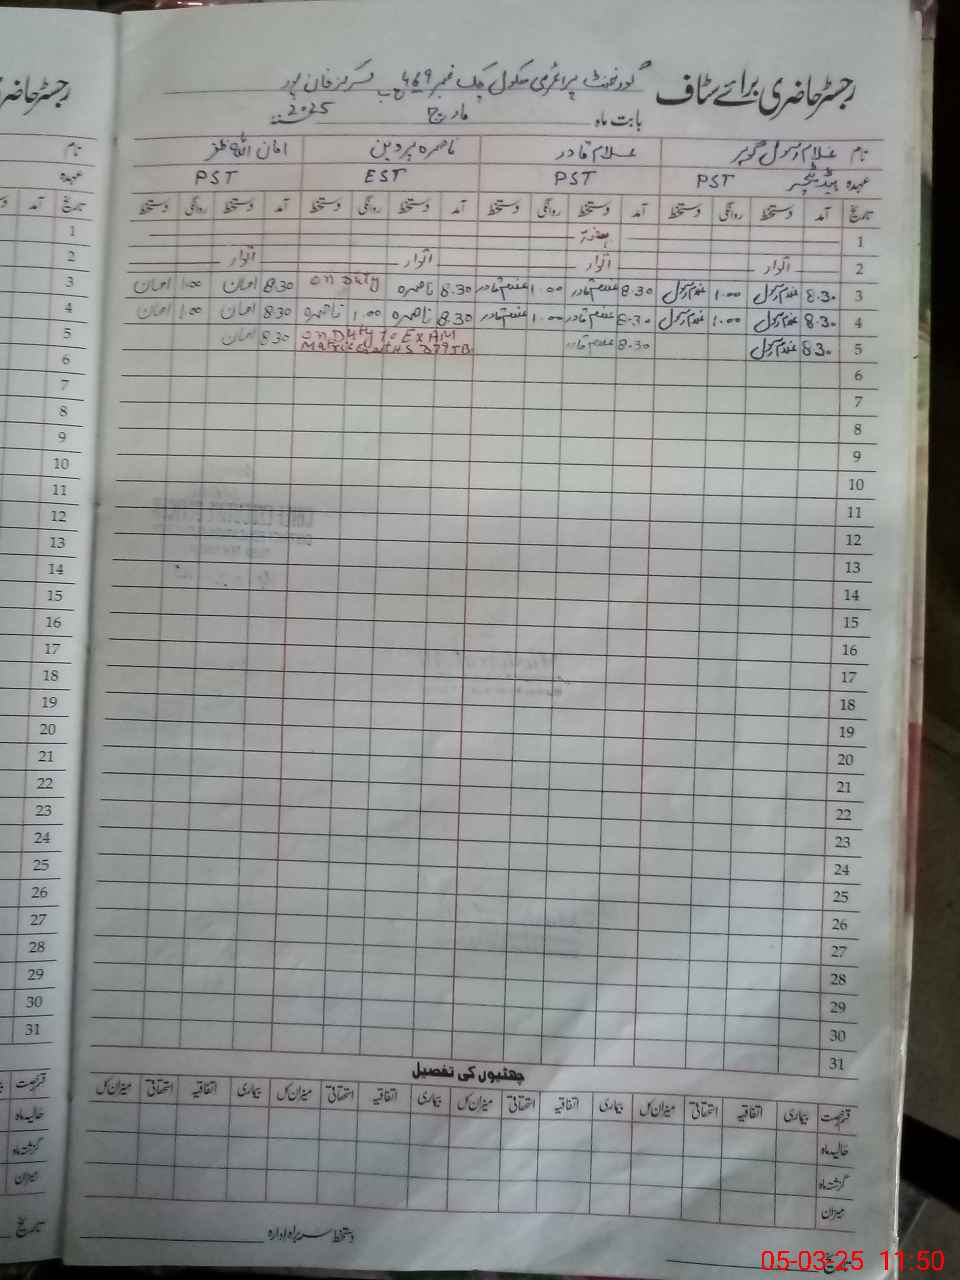 رجسٹر حاضری برائے سٹاف گورنمنٹ پرائمری سکول چک نمبر 469 ج ب
بابت ماہ مارچ 2025
نام غلام رسول غلام قادر ناصرہ پروین امان اللہ
عہدہ ہیڈ ٹیچر PST PST EST PST
تاریخ آمد دستخط روانگی دستخط آمد دستخط روانگی دستخط آمد دستخط روانگی دستخط آمد دستخط روانگی دستخط تاریخ
1 ہفتہ 1
2 اتوار اتوار اتوار اتوار 2
3 8.30 غلام رسول 1.00 غلام رسول 8.30 غلام قادر 1.00 غلام قادر 8.30 ناصرہ on Duty 8.30 امان 1.00 امان 3
4 8.30 غلام رسول 1.00 غلام رسول 8.30 غلام قادر 1.00 غلام قادر 8.30 ناصرہ 1.00 ناصرہ 8.30 امان 1.00 امان 4
5 8.30 غلام رسول 8.30 غلام قادر on Duty to ExAM 8.30 امان 5
6 6
7 7
8 8
9 9
10 10
11 11
12 12
13 13
14 14
15 15
16 16
17 17
18 18
19 19
20 20
21 21
22 22
23 23
24 24
25 25
26 26
27 27
28 28
29 29
30 30
31 31
چھٹیوں کی تفصیل
قسم رخصت بیماری اتفاقیہ استحقاقی میزان کل بیماری اتفاقیہ استحقاقی میزان کل بیماری اتفاقیہ استحقاقی میزان کل بیماری اتفاقیہ استحقاقی میزان کل قسم رخصت
حالیہ ماہ حالیہ ماہ
گزشتہ ماہ گزشتہ ماہ
میزان میزان
تاریخ دستخط سربراہ ادارہ تاریخ
05-03-25 11:50